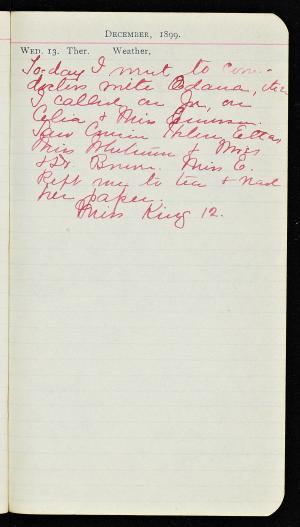 December, 1899.
Wed. 13. Ther. Weather.
To-day I went to
doctors with Edana,
I called on
Celia & Miss Emerson.
Saw Cousin Ellen,
Miss & Miss
& Dr. Brown. Miss E.
kept me to tea & read
her paper.
Miss King 12.